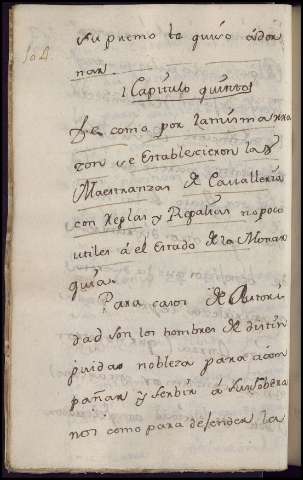 su premo te quiso ador
nar.
Capitulo quinto
De como por la misma ra
zon se Establecieron las
Maestranzas de Cavalleria
con Reglas y Regalias no poco
utiles á el Estado de la Monar
quia.
Para casos de Autori
dad son los hombres de distin
guida nobleza para acom
pañar y serbir á su sobera
no: como para defender la